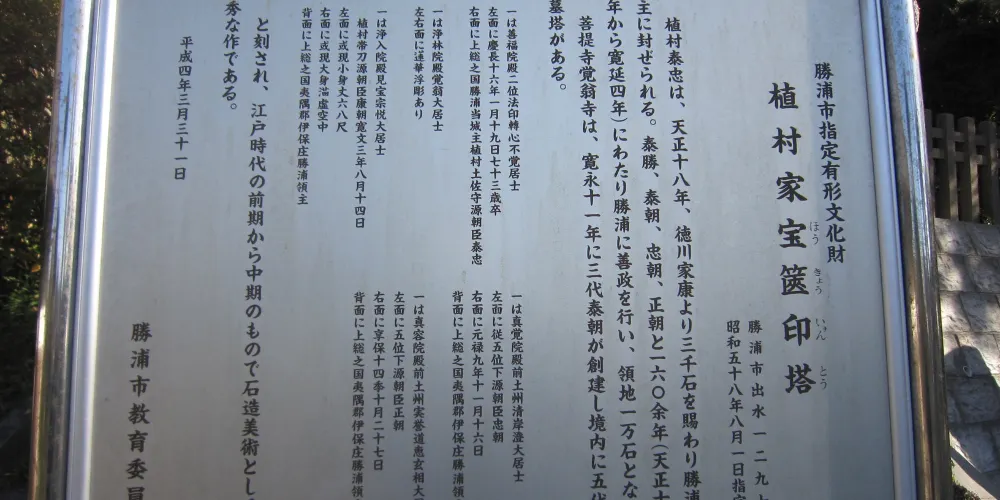 勝浦市指定有形文化財
植村家宝篋印塔
ほう きょう いん とう
勝浦市出水一二九
昭和五十八年八月一日指定
植村泰忠は、天正十八年、徳川家康より三千石を賜わり勝浦
主に封ぜられる。泰勝、泰朝、忠朝、正朝と一六〇余年(天正十
年から寛延四年)にわたり勝浦に善政を行い、領地一万石とな
菩提寺覚翁寺は、寛永十一年に三代泰朝が創建し境内に五代
墓塔がある。
一は善福院殿二位法印轉心不覚居士
左面に慶長十六年一月十九日七十三歳卒
右面に上総之国勝浦当城主植村土佐守源朝臣泰忠
一は浄林院殿覚翁大居士
左右面に蓮華浮彫あり
一は浄入院殿見宝宗悦大居士
植村帯刀源朝臣康朝寛文三年八月十四日
左面に或現小身丈六八尺
右面に或現大身満虚空中
背面に上総之国夷隅郡伊保庄勝浦領主
一は真覚院殿前土州清岸澄大居士
左面に従五位下源朝臣忠朝
右面に元禄九年十一月十六日
背面に上総之国夷隅郡伊保庄勝浦領
一は真容院殿前土州実誉道恵玄相大
左面に五位下源朝臣正朝
右面に享保十四季十月二十七日
背面に上総之国夷隅郡伊保庄勝浦領
と刻され、江戸時代の前期から中期のもので石造美術とし
秀な作である。
平成四年三月三十一日
勝浦市教育委員